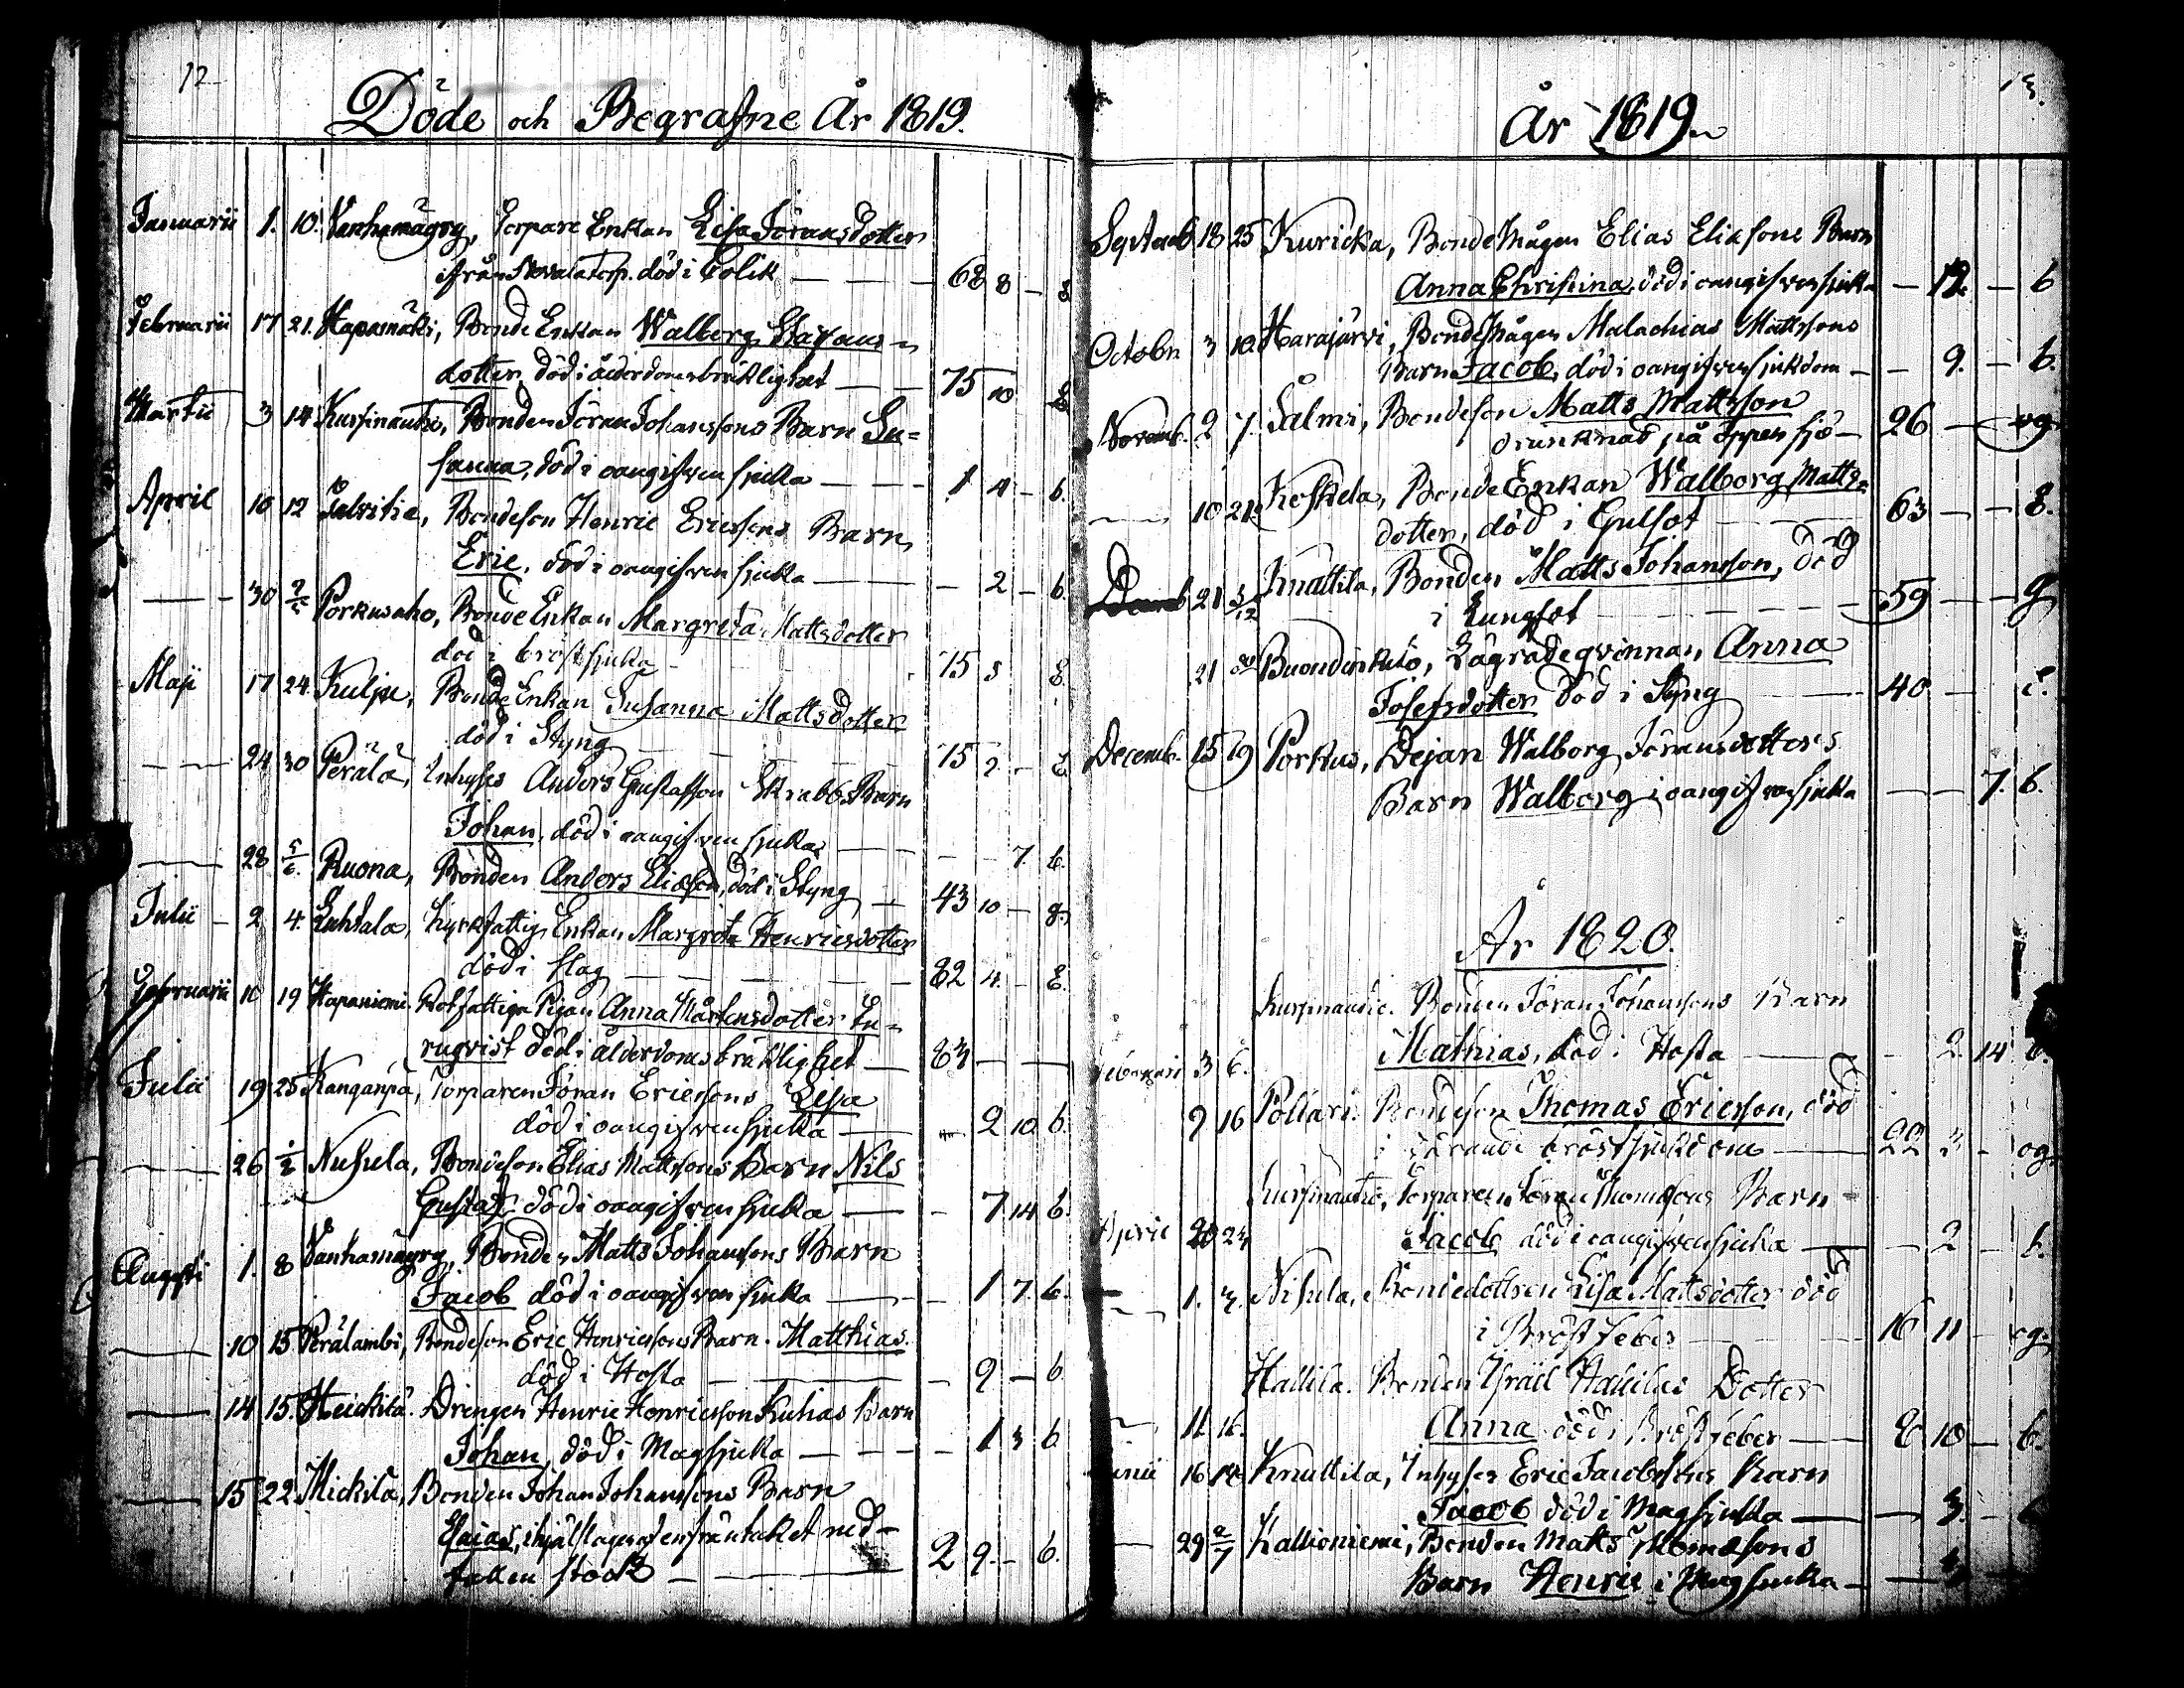 12
Döde och Begrafne År 1819.
Januarii 1. 10. Vanhamägry, Torpare Enkan Lisa Jöransdotter
ifrån torp. död i Colik 68 8 - E
Februarii 17 21. Hapamäki, Bonde Enkan Walborg Staffans
dotter död i ålderdomsbräklighet 75 10 E
Martii 3 14 Kursinautio, Bonden Jöran Johanssons Barn Su=
sanna, död i oangifven sjuka 1 4 - b.
April 10 12 Bondeson Henric Ericssons Barn
Eric, död i oangifven sjuka - 2 - b
30 2/5 Porkusaho, Bonde Enkan Margreta Mattsdotter
död i bröstsjuka 75 5 E.
Maji 17 24. Kulju, Bonde Enkan Susanna Mattsdotter
död i Styng 75 2 - E
24 30 Perälä, Inhyses Anders Gustafsson Skrabbs Barn
Johan, död i oangifven sjuka - - 7. b.
28 5/6 Ruona, Bonden Anders Eliasson, död i Styng 43 10 - g.
Julii 2 4. Luhtala, kyrkfattig Enkan Margreta Henricsdotter
död i slag 82 4. - E.
Februarii 10 19 Hapaniemi Rotfattiga Pigan Anna Mårtensdotter Tu=
ruqvist död i ålderdomsbräklighet 83 - -
Julii 19 25 Kangaspä, Torparen Jöran Ericssons Lisa
död i oangifven sjuka 2 10 b.
26 1/8 Nisula, Bondeson Elias Mattssons Barn Nils
Gustaf död i oangifven sjuka - 7 14 b.
Augusti 1. 8 Vanhamägry, Bonden Matts Johanssons Barn
Jacob död i oangifven sjuka - 1 7. b.
10 15 Perälambi, Bondeson Eric Henricssons Barn Matthias.
död i Hosta - 9 - b
14 15. Heickilä. Drengen Henric Henricsson Kuhas Barn
Johan, död i Magsjuka - 1 3 b.
15 22. Mickilä, Bonden Johan Johanssons Barn
Esaias, ihjälslagen af en från taket ned-
fallen stock 2 9. - b.
13.
År 1819.
Septemb. 18 25 Kuricka, Bonde Mågen Elias Eliasons Barn
Anna Christina, död i oangifven sjuka - 12. - b
Octobr. 3 10. Harajärvi, Bonde Mågen Malachias Mattssons
Barn Jacob, död i oangifven sjukdom - 9. - b.
Novemb. 2 7. Salmi, Bondeson Matts Mattsson
drunknad på öppen sjö - 26 - og
10 21. Koskela, Bonde Enkan Walborg Matts=
dotter, död i Gulsot 63 - - E.
21 5/12 Knuttila, Bonden Matts Johansson, död
i Lungsot 59 - - g
21 Lägradeqvinnan Anna
Josefsdotter död i Styng 40 -
Decemb. 15 19 Porkus, Dejan Walborg Jöransdotters
Barn Walborg i oangifven sjuka - - 7. b.
År 1820.
Kursinautio. Bonden Jöran Johanssons Barn
Februari 3 6. Mathias, död i Hosta - 2. 14
9 16 Pollari. Bondeson Thomas Ericsson, död
i bröstsjukdom 22 3 - og
Kursinautio, Torparen Jöran Thomasons Barn
April 20 24 Jacob död i oangifven sjuka - 2 - b.
1. 3. Nisula, Bondedottren Lisa Mattsdotter död
i Bröstfeber 16 11 - og
Hallila. Bonden Israël Hallilas Dotter
11. 16. Anna död i Bröstfeber 8 10 - b.
Junii 16 18 Knuttila, Inhyses Eric Jacobssons Barn
Jacob död i Magsjuka - 3.
29 2/7 Kallioniemi, Bonden Matts Thomasons
Barn Henric i Magsjuka - 3